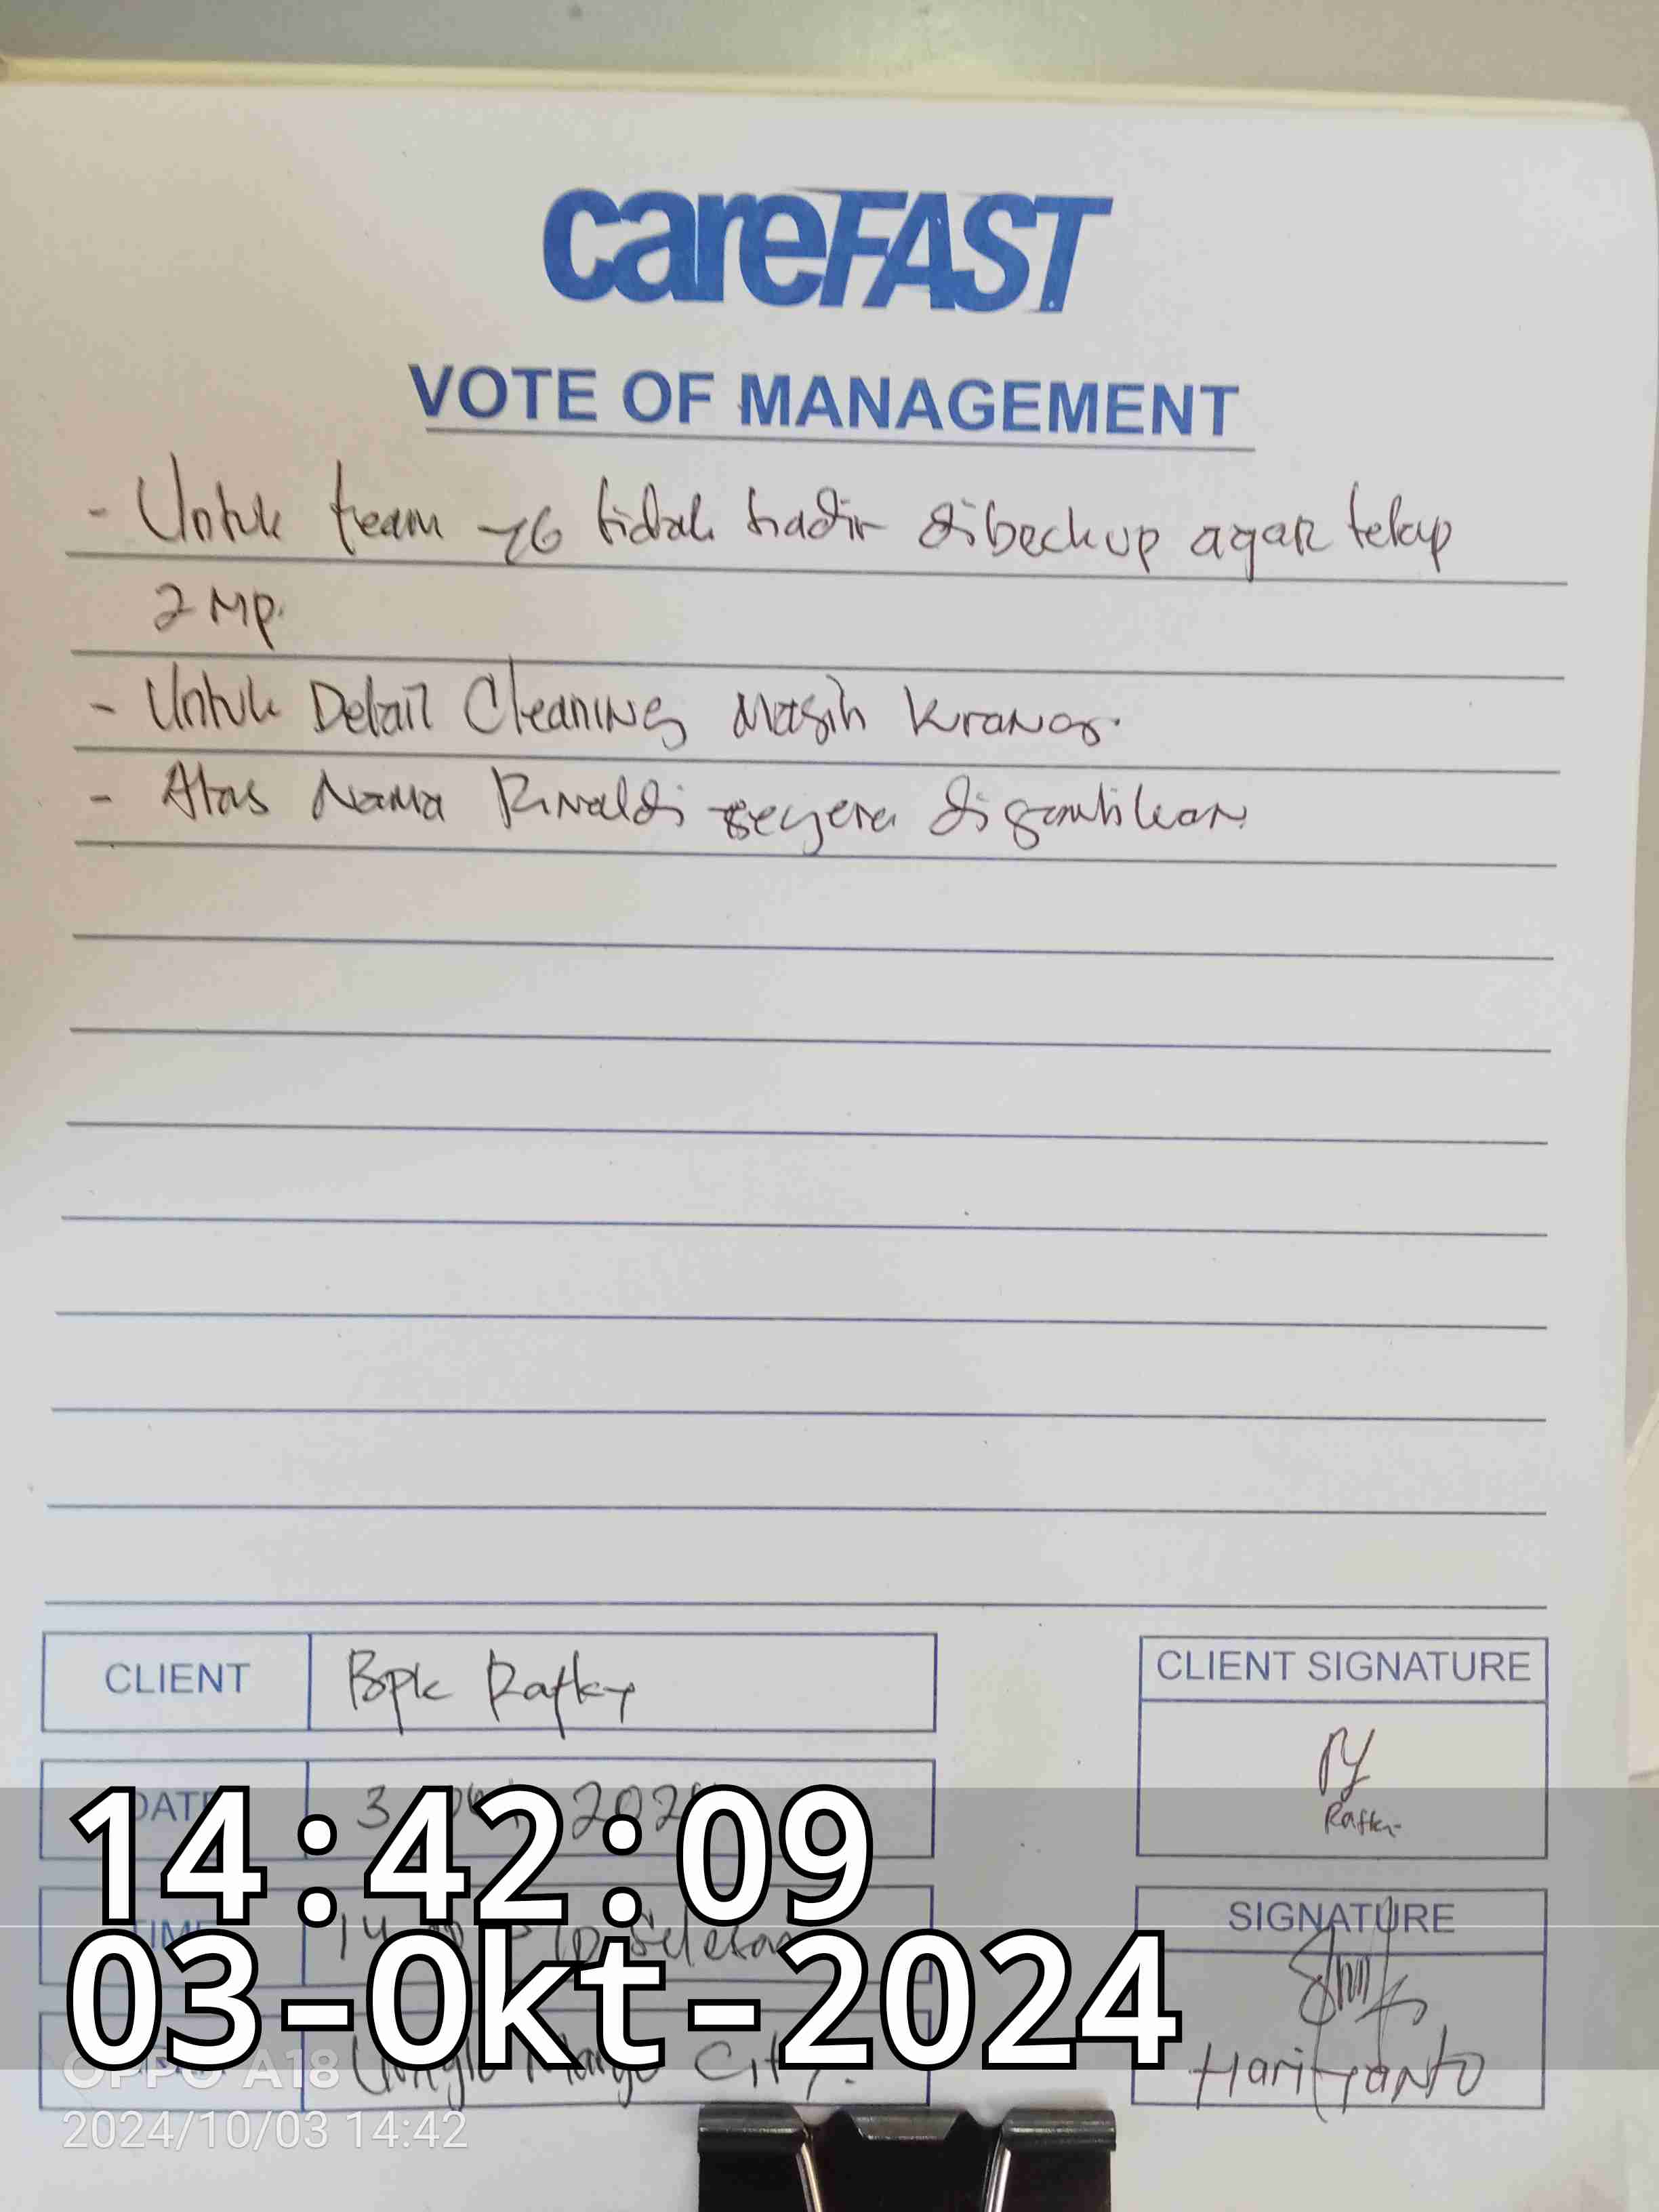 careFAST
VOTE OF MANAGEMENT
- Untuk team yg tidak hadir dibeckup agar tetap
2 MP.
- Untuk Detail Cleaning Masih Krang.
- Atas Nama Rinaldi segera digantikan
CLIENT
Bpk Rafky
CLIENT SIGNATURE
Rafky
DATE
3 2024
14:42:09
TIME
14
SIGNATURE
03-Okt-2024
City.
Hariyanto
OPPO A18
2024/10/03 14:42